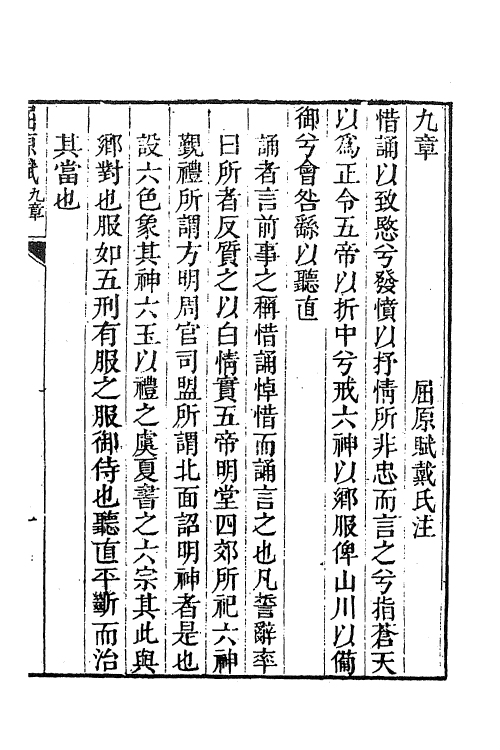 九章　屈原賦戴氏注
惜誦以致愍兮發憤以抒情所非忠而言之兮指蒼天
以爲正令五帝以折中兮戒六神以鄉服俾山川以備
御兮會咎繇以聽直
誦者言前事之稱惜誦悼惜而誦言之也凡誓辭率
曰所者反質之以白情實五帝明堂四郊所祀六神
覲禮所謂方明周官司盟所謂北面詔明神者是也
設六色象其神六玉以禮之虞夏書之六宗其此與
鄉對也服如五刑有服之服御侍也聽直平斷而治
其當也
屈原賦九章
一